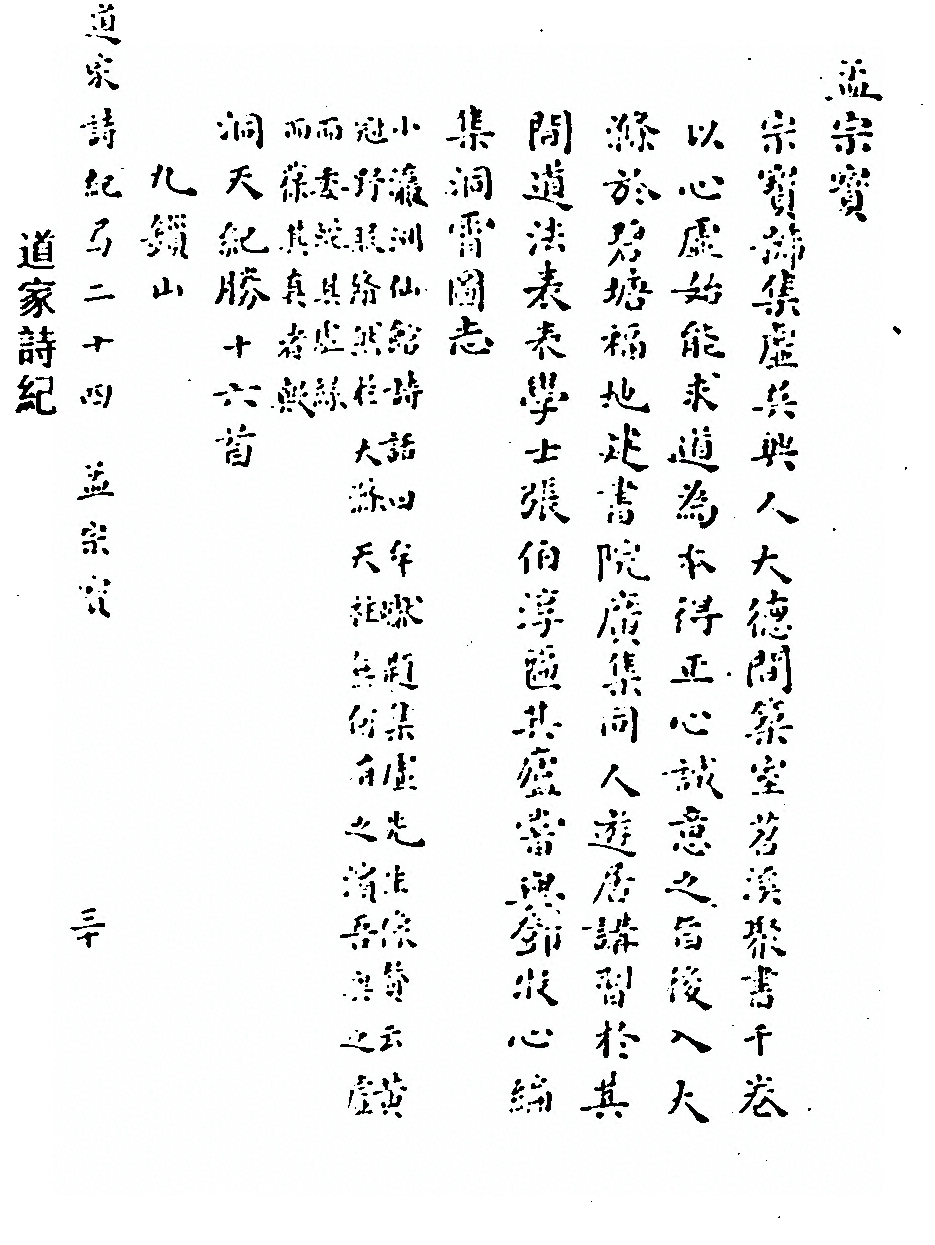 孟宗寶
宗寶號集虛吳興人大德間築室苕溪聚書千卷
以心虛始能求道為本得正心誠意之旨後入大
滌於碧塘福地建書院廣集同人遊居講習於其
間道法表表學士張伯淳匾其廬嘗與鄧牧心編
集洞霄圖志
小瀛洲仙館詩話曰牟巘題集虛先生像贊云黃
冠野服翛然在大滌天柱無何有之濱吾與之虛
而委蛇其虛緣
而葆其真者歟
洞天紀勝十六首
九鎖山
道家詩紀 二十四 孟宗寶 三十
道家詩紀